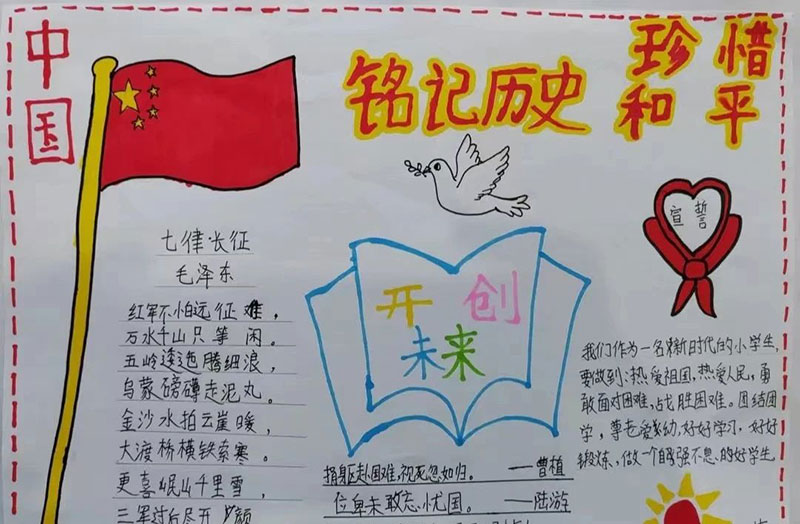 中国
铭记历史
珍惜
和平
宣誓
七律·长征
毛泽东
红军不怕远征难，
万水千山只等闲。
五岭逶迤腾细浪，
乌蒙磅礴走泥丸。
金沙水拍云崖暖，
大渡桥横铁索寒。
更喜岷山千里雪，
三军过后尽开颜
开创
未来
捐躯赴国难，视死忽如归。——曹植
位卑未敢忘忧国。——陆游
我们作为一名新时代的小学生，
要做到：热爱祖国，热爱人民，勇
敢面对困难，战胜困难。团结同
学，尊老爱幼，好好学习，好好
锻炼，做一个自强不息的好学生